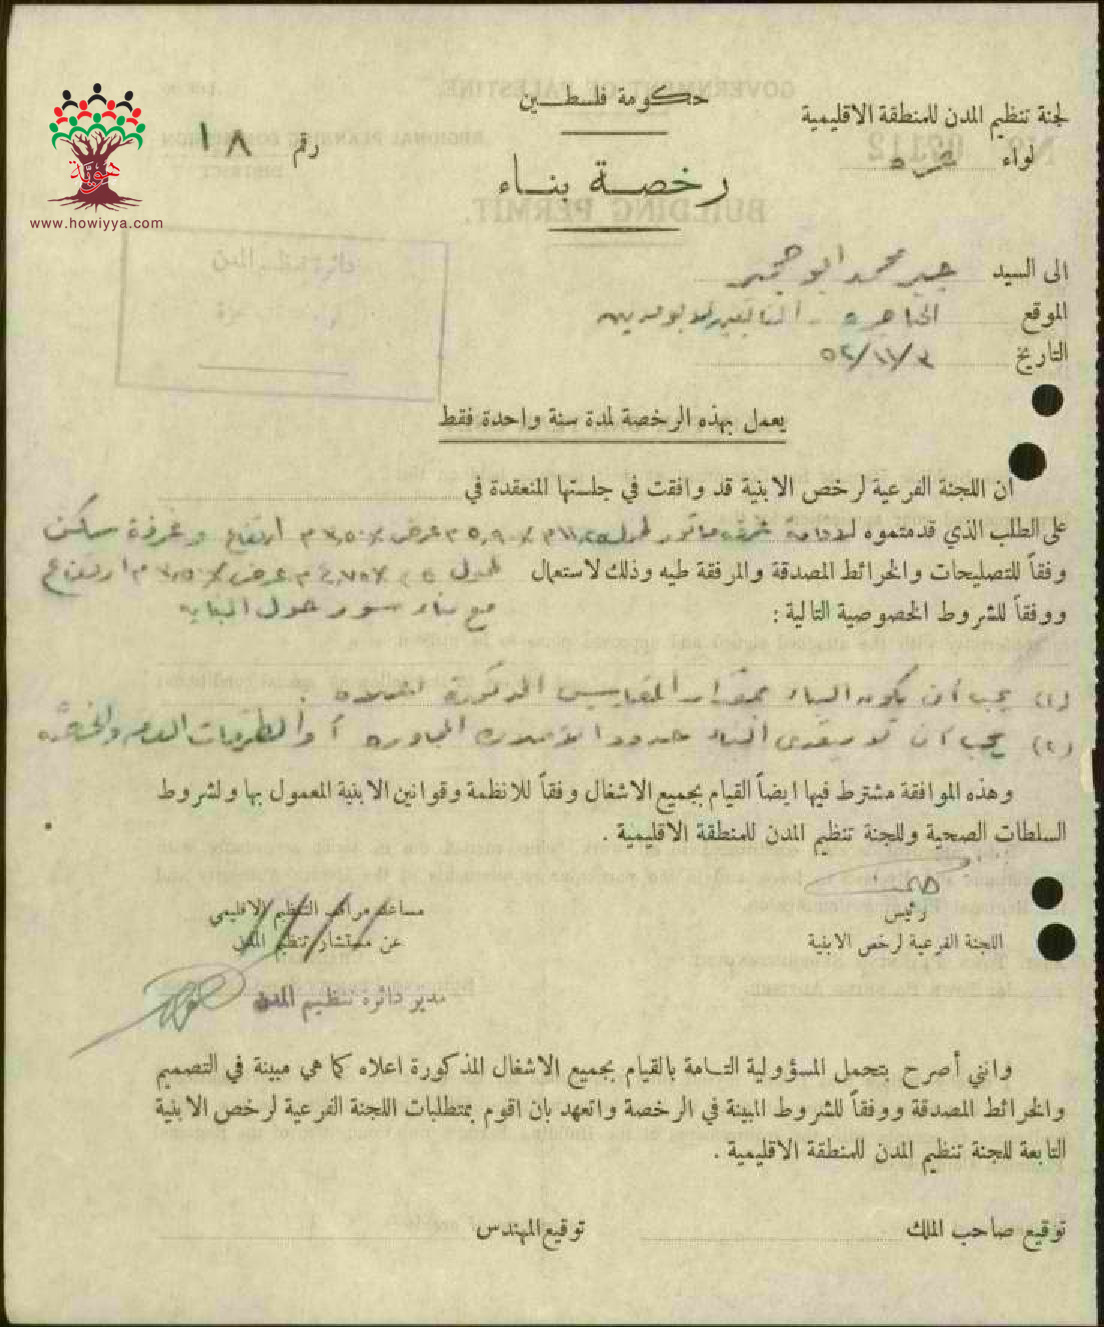 حكومة فلسطين
لجنة تنظيم المدن للمنطقة الاقليمية
لواء غزة
رقم ١٨
رخصة بناء
هوية
www.howiyya.com
دائرة تنظيم المدن
الى السيد جبر محمد ابو
الموقع
التاريخ ٣/١١/٥٢
يعمل بهذه الرخصة لمدة سنة واحدة فقط
ان اللجنة الفرعية لرخص الابنية قد وافقت في جلستها المنعقدة في
على الطلب الذي قدمتموه لاقامة غرفة ماتور طول عرض ارتفاع وغرفة سكن
وفقاً للتصليحات والخرائط المصدقة والمرفقة طيه وذلك لاستعمال طول عرض ارتفاع
ووفقاً للشروط الخصوصية التالية : مع بناء سور حول البنايه
(١) يجب أن يكون البناء بمقدار المقاييس المذكورة اعلاه .
(٢) يجب أن لا يتعدى البناء حدود الاملاك المجاوره أو الطرقات العامه والخاصه
وهذه الموافقة مشترط فيها ايضاً القيام بجميع الاشغال وفقاً للانظمة وقوانين الابنية المعمول بها ولشروط
السلطات الصحية وللجنة تنظيم المدن للمنطقة الاقليمية .
رئيس
اللجنة الفرعية لرخص الابنية
مساعد مراقب التنظيم الاقليمي
عن مستشار تنظيم المدن
مدير دائرة تنظيم المدن
وانني أصرح بتحمل المسؤولية التامة بالقيام بجميع الاشغال المذكورة اعلاه كما هي مبينة في التصميم
والخرائط المصدقة ووفقاً للشروط المبينة في الرخصة واتعهد بان اقوم بمتطلبات اللجنة الفرعية لرخص الابنية
التابعة للجنة تنظيم المدن للمنطقة الاقليمية .
توقيع صاحب الملك
توقيع المهندس